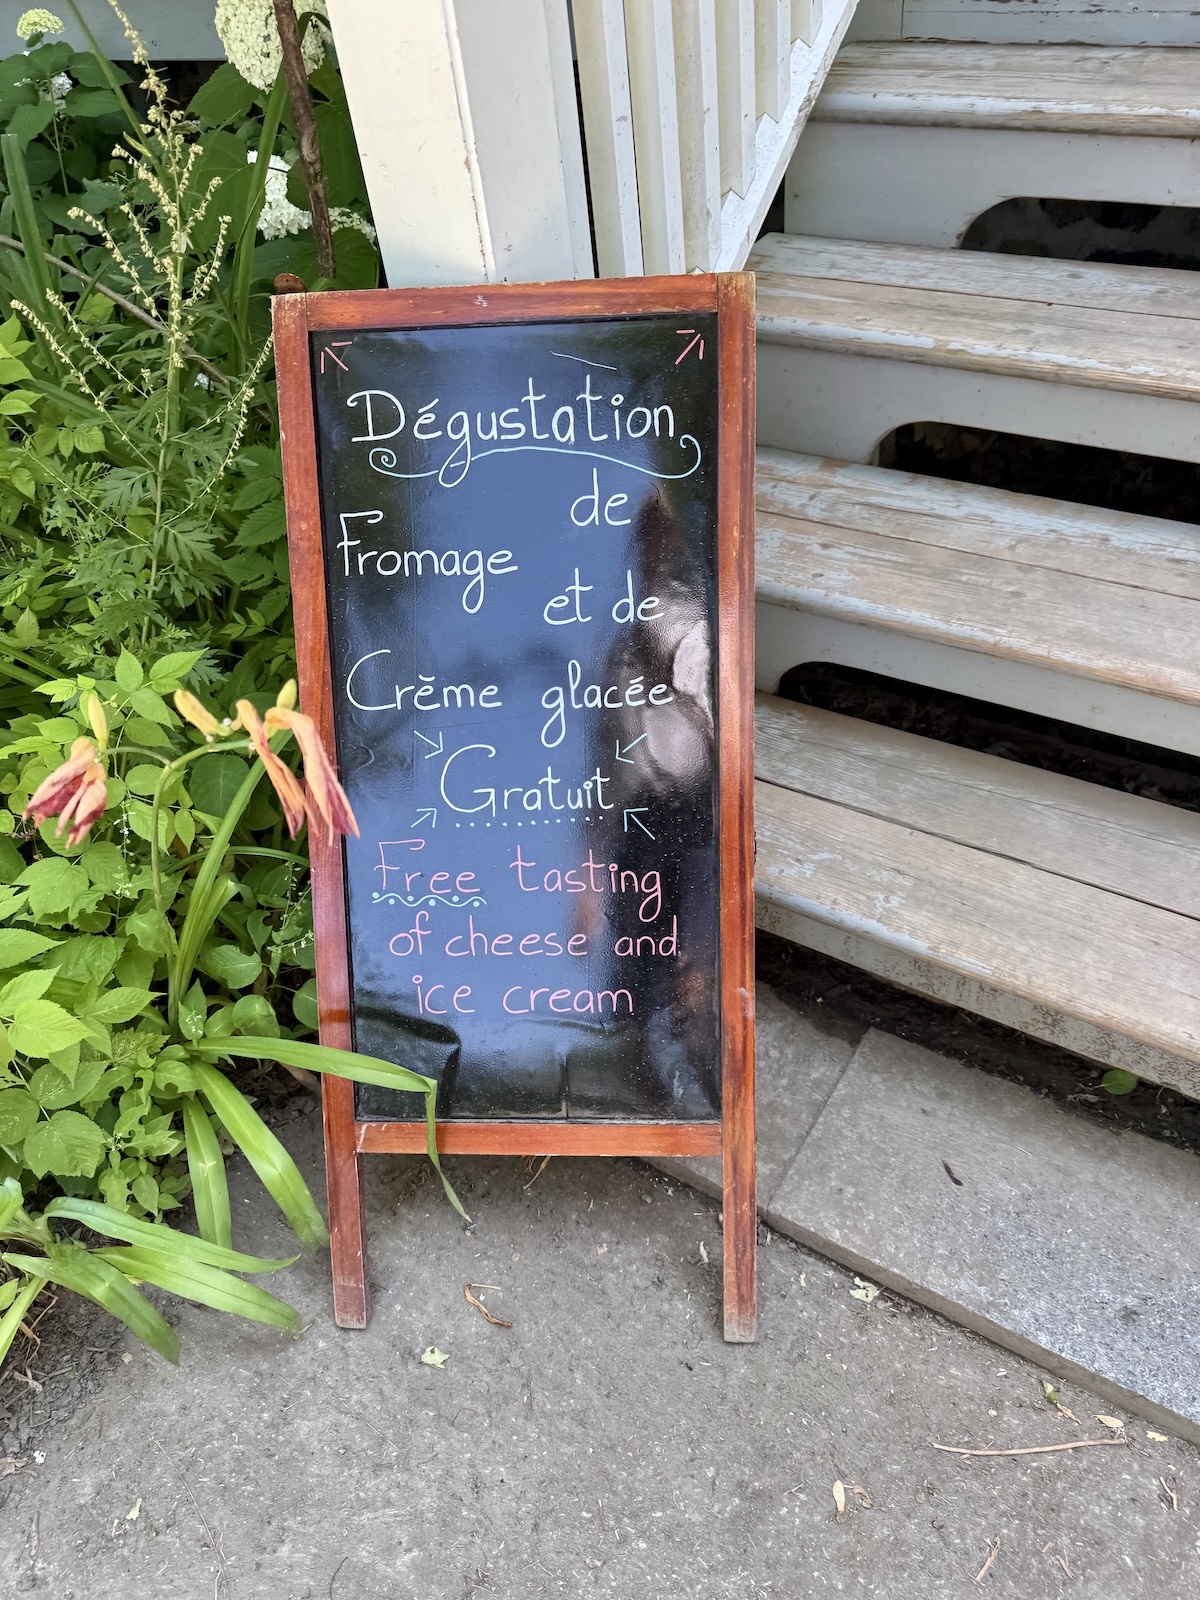 Dégustation
de
Fromage
et de
Crème glacée
Gratuit
Free tasting
of cheese and
ice cream